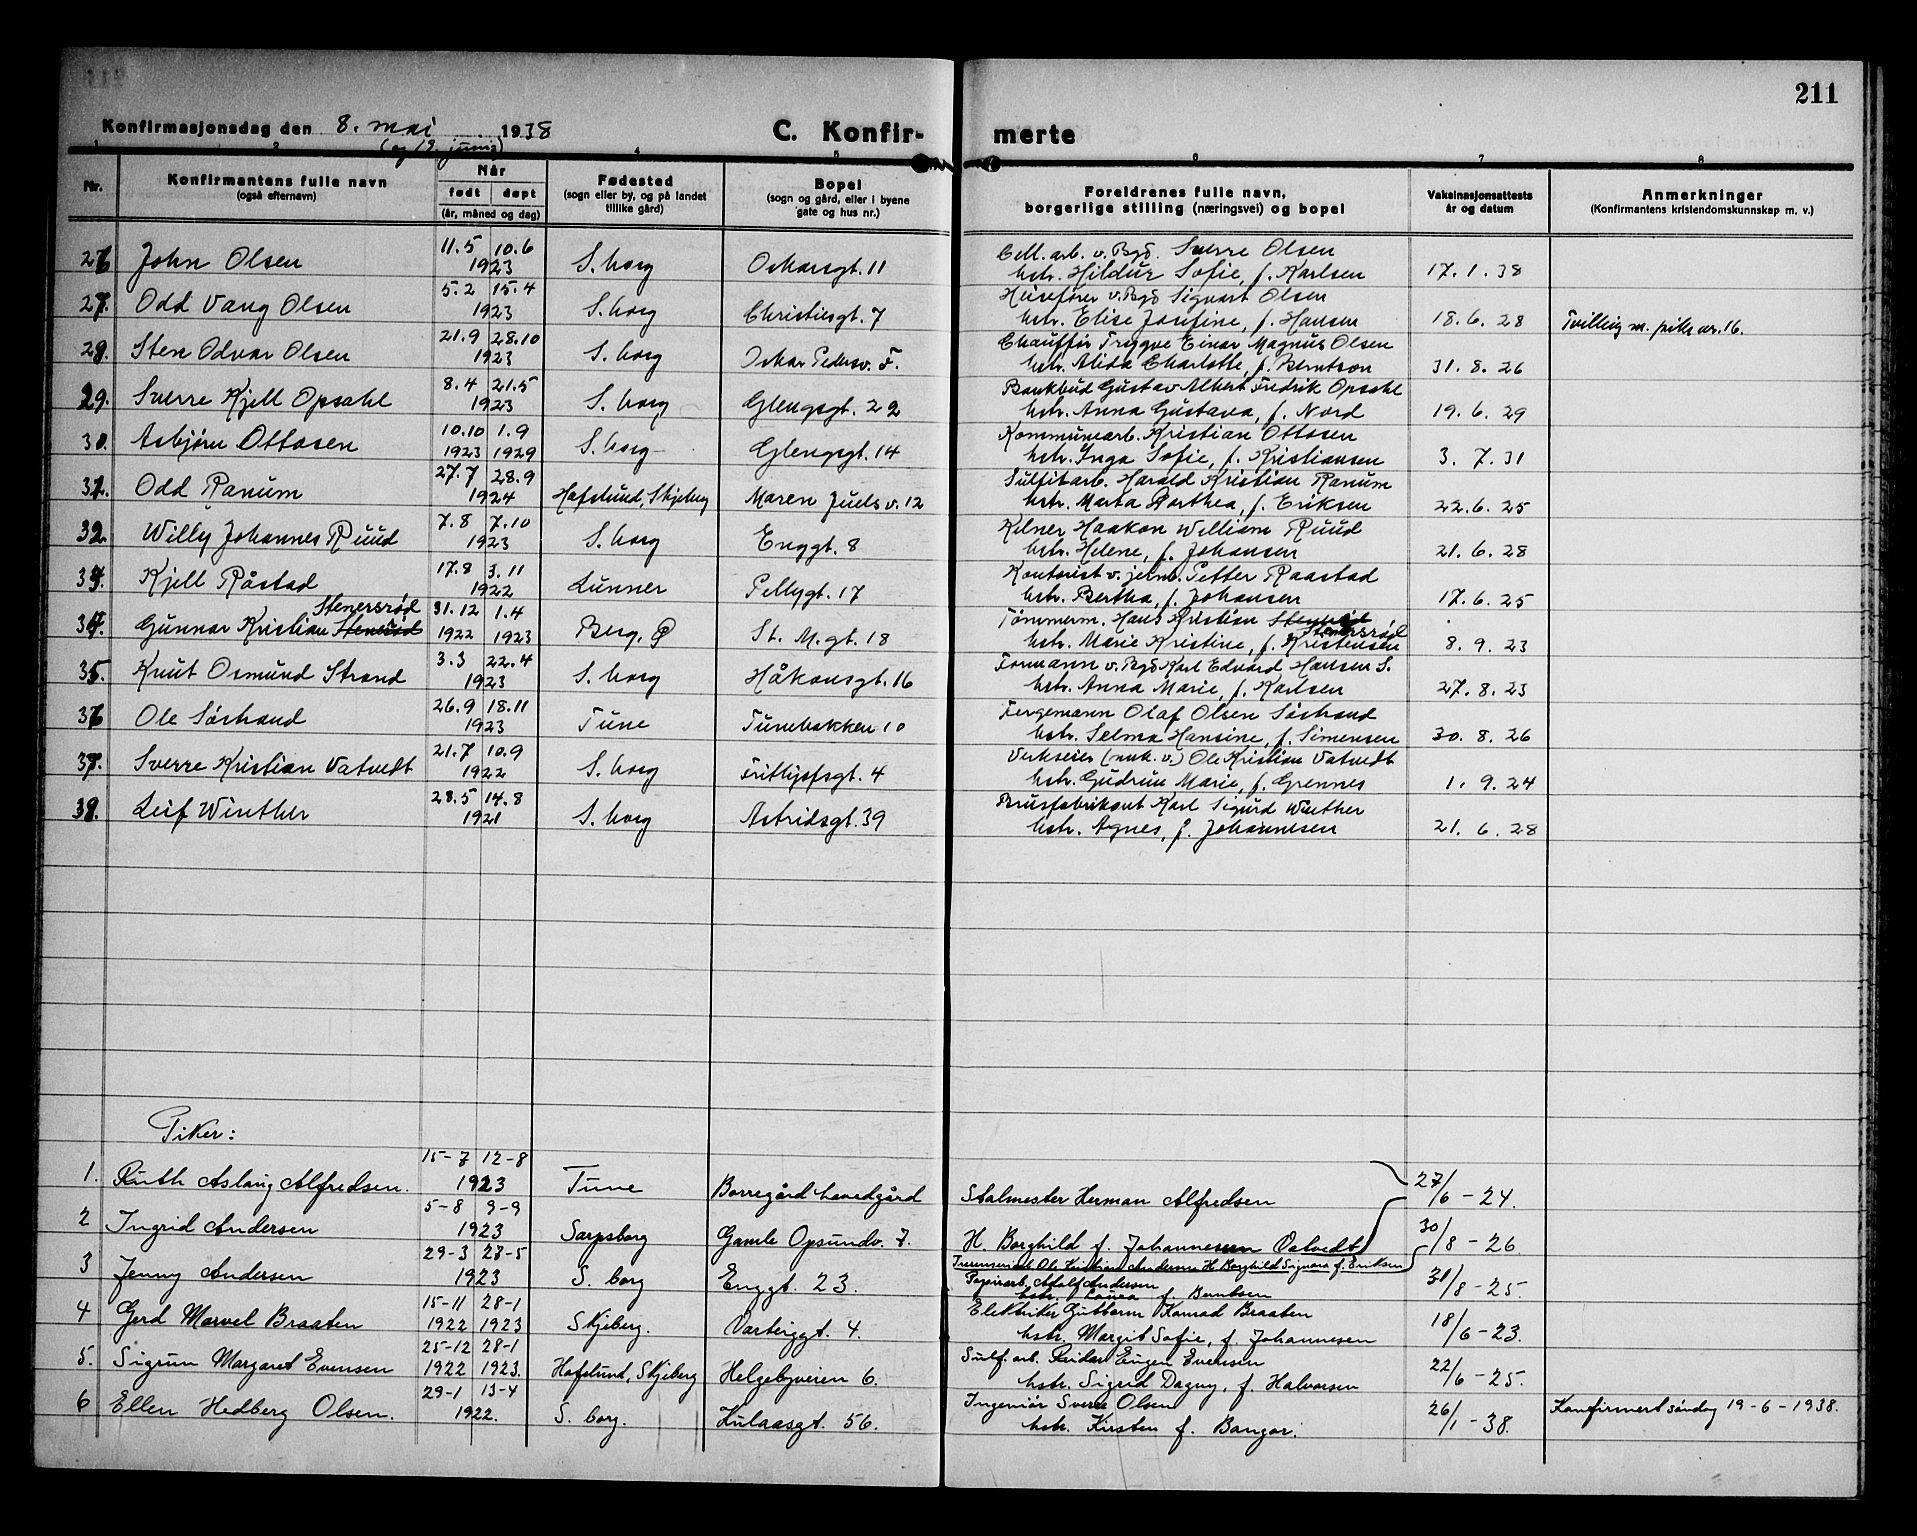 211
Konfirmasjonsdag den 8. mai 1938
(og 19. juni)
C. Konfir- merte
1 2 3 4 5 6 7 8
Nr.
Konfirmantens fulle navn
(også efternavn)
Når
født døpt
(år, måned og dag)
Fødested
(sogn eller by, og på landet
tillike gård)
Bopel
(sogn og gård, eller i byene
gate og hus nr.)
Foreldrenes fulle navn,
borgerlige stilling (næringsvei) og bopel
Vaksinasjonsattests
år og datum
Anmerkninger
(Konfirmantens kristendomskunnskap m. v.)
11.5 10.6 Cell. arb. v. Bgd. Sverre Olsen
26 John Olsen 1923 S. borg Oskarsgt. 11 hstr. Hildur Sofie, f. Karlsen 17. 1. 38
5.2 15.4 Heisefører v. Bgd Sigvart Olsen
27. Odd Vang Olsen 1923 S. borg Christiesgt. 7 hstr. Elise Josefine, f. Hansen 18. 6. 28 Tvilling m. pike nr. 16.
21.9 28.10 Chauffør Trygve Einar Magnus Olsen
28. Sten Odvar Olsen 1923 S. borg Oskar Pedersv. F. hstr. Alida Charlotte, f. Berntson 31. 8. 26
8.4 21.5 Bankbud Gustav Albert Fredrik Opsahl
29. Sverre Kjell Opsahl 1923 S. borg Glengsgt. 22 hstr. Anna Gustava, f. Nord 19. 6. 29
10.10 1.9 Kommunearb. Kristian Ottosen
30. Asbjørn Ottosen 1923 1929 S. borg Glengsgt. 14 hstr. Inga Sofie, f. Kristiansen 3. 7. 31
27.7 28.9 Sulfitarb. Harald Kristian Ranum
31. Odd Ranum 1924 Hafslund, Skjeberg Maren Juels v. 12 hstr. Marta Dorthea, f. Eriksen 22. 6. 25
7.8 7.10 Kelner Haakon William Ruud
32. Willy Johannes Ruud 1923 S. borg Enggt. 8 hstr. Helene, f. Johansen 21. 6. 28
17.8 3.11 Kontorist v. jernb. Petter Raastad
33. Kjell Råstad 1922 Lunner Pellygt. 17 hstr. Bertha, f. Johansen 17. 6. 25
Stenersrød 31.12 1.4 Tømmerm. Hans Kristian Stenersrød
34. Gunnar Kristian 1922 1923 Berg, Ø St. M. gt. 18 hstr. Marie Kristine, f. Kristensen 8. 9. 23
3.3 22.4 Formann v. Bgd Karl Edvard Hansen S.
35. Knut Osmund Strand 1923 S. borg Håkonsgt. 16 hstr. Anna Marie, f. Karlsen 27. 8. 23
26.9 18.11 Fergemann Olaf Olsen Søstrand
36 Ole Søstrand 1923 Tune Tunebakken 10 hstr. Selma Hansine, f. Simensen 30. 8. 26
21.7 10.9 Verkseier (mek. v.) Ole Kristian Vatvedt
37. Sverre Kristian Vatvedt 1922 S. borg Fritjofsgt. 4 hstr. Gudrun Marie, f. Grennes 1. 9. 24
28.5 14.8 Brusfabrikant Karl Sigurd Winther
38. Leif Winther 1921 S. borg Astridsgt. 39 hstr. Agnes, f. Johannesen 21. 6. 28
Piker:
15-7 12-8
1. Ruth Aslaug Alfredsen. 1923 Tune Borregård hovedgård Stalmester Herman Alfredsen 27/6 - 24.
5-8 9-9
2 Ingrid Andersen 1923 Sarpsborg Gamle Opsundv. 7. H. Borghild f. Johannesen Vatvedt 30/8 - 26
Ole Kristian Andersen H. Borghild Signora f. Eriksen
29-3 28-5 Papirarb. Adolf Andersen
3 Jenny Andersen 1923 S. borg Enggt. 23. hstr. Laura f. Berntsen 31/8 - 25.
15-11 28-1 Elektriker Guttorm Konrad Braaten
4 Gerd Marvel Braaten 1922 1923 Skjeberg. Varteiggt. 4. hstr. Margit Sofie, f. Johannesen 18/6 - 23.
25-12 28-1 Sulf. arb. Reidar Eugen Evensen
5. Sigrun Margaret Evensen 1922 1923. Hafslund, Skjeberg Helgebyveien 6. hstr. Sigrid Dagny, f. Halvorsen 22/6 - 25.
29-1 13-4 Ingeniør Sverre Olsen
6 Ellen Hedberg Olsen. 1922. S. borg. Kulaasgt. 56. hstr. Kirsten f. Bangor. 26/1 - 38. Konfirmert søndag 19-6-1938.